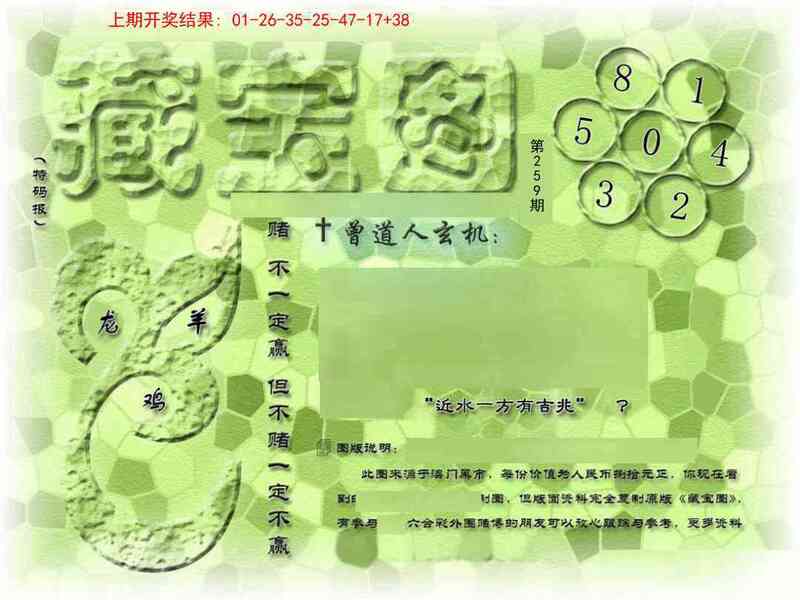 上期开奖结果: 01-26-35-25-47-17+38
藏宝图
(特码报)
第259期
8
1
5
0
4
3
2
†曾道人玄机:
赌不一定赢但不赌一定不赢
龙
羊
鸡
“近水一方有吉兆” ?
图版说明:
此图来源于澳门黑市,每份价值为人民币捌拾元正,你现在看
图,但版面资料完全复制原版《藏宝图》,
有参与 六合彩外围赌博的朋友可以放心跟踪与参考,更多资料